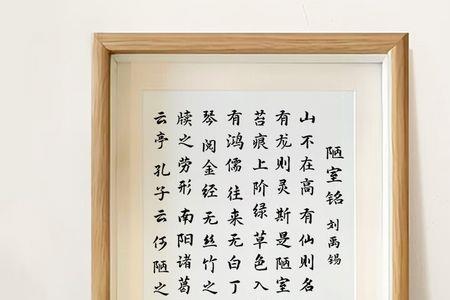 陋室铭 刘禹锡
山不在高有仙则名
有龙则灵斯是陋室
苔痕上阶绿草色入
有鸿儒往来无白丁
琴阅金经无丝竹之
牍之劳形南阳诸葛
云亭孔子云何陋之